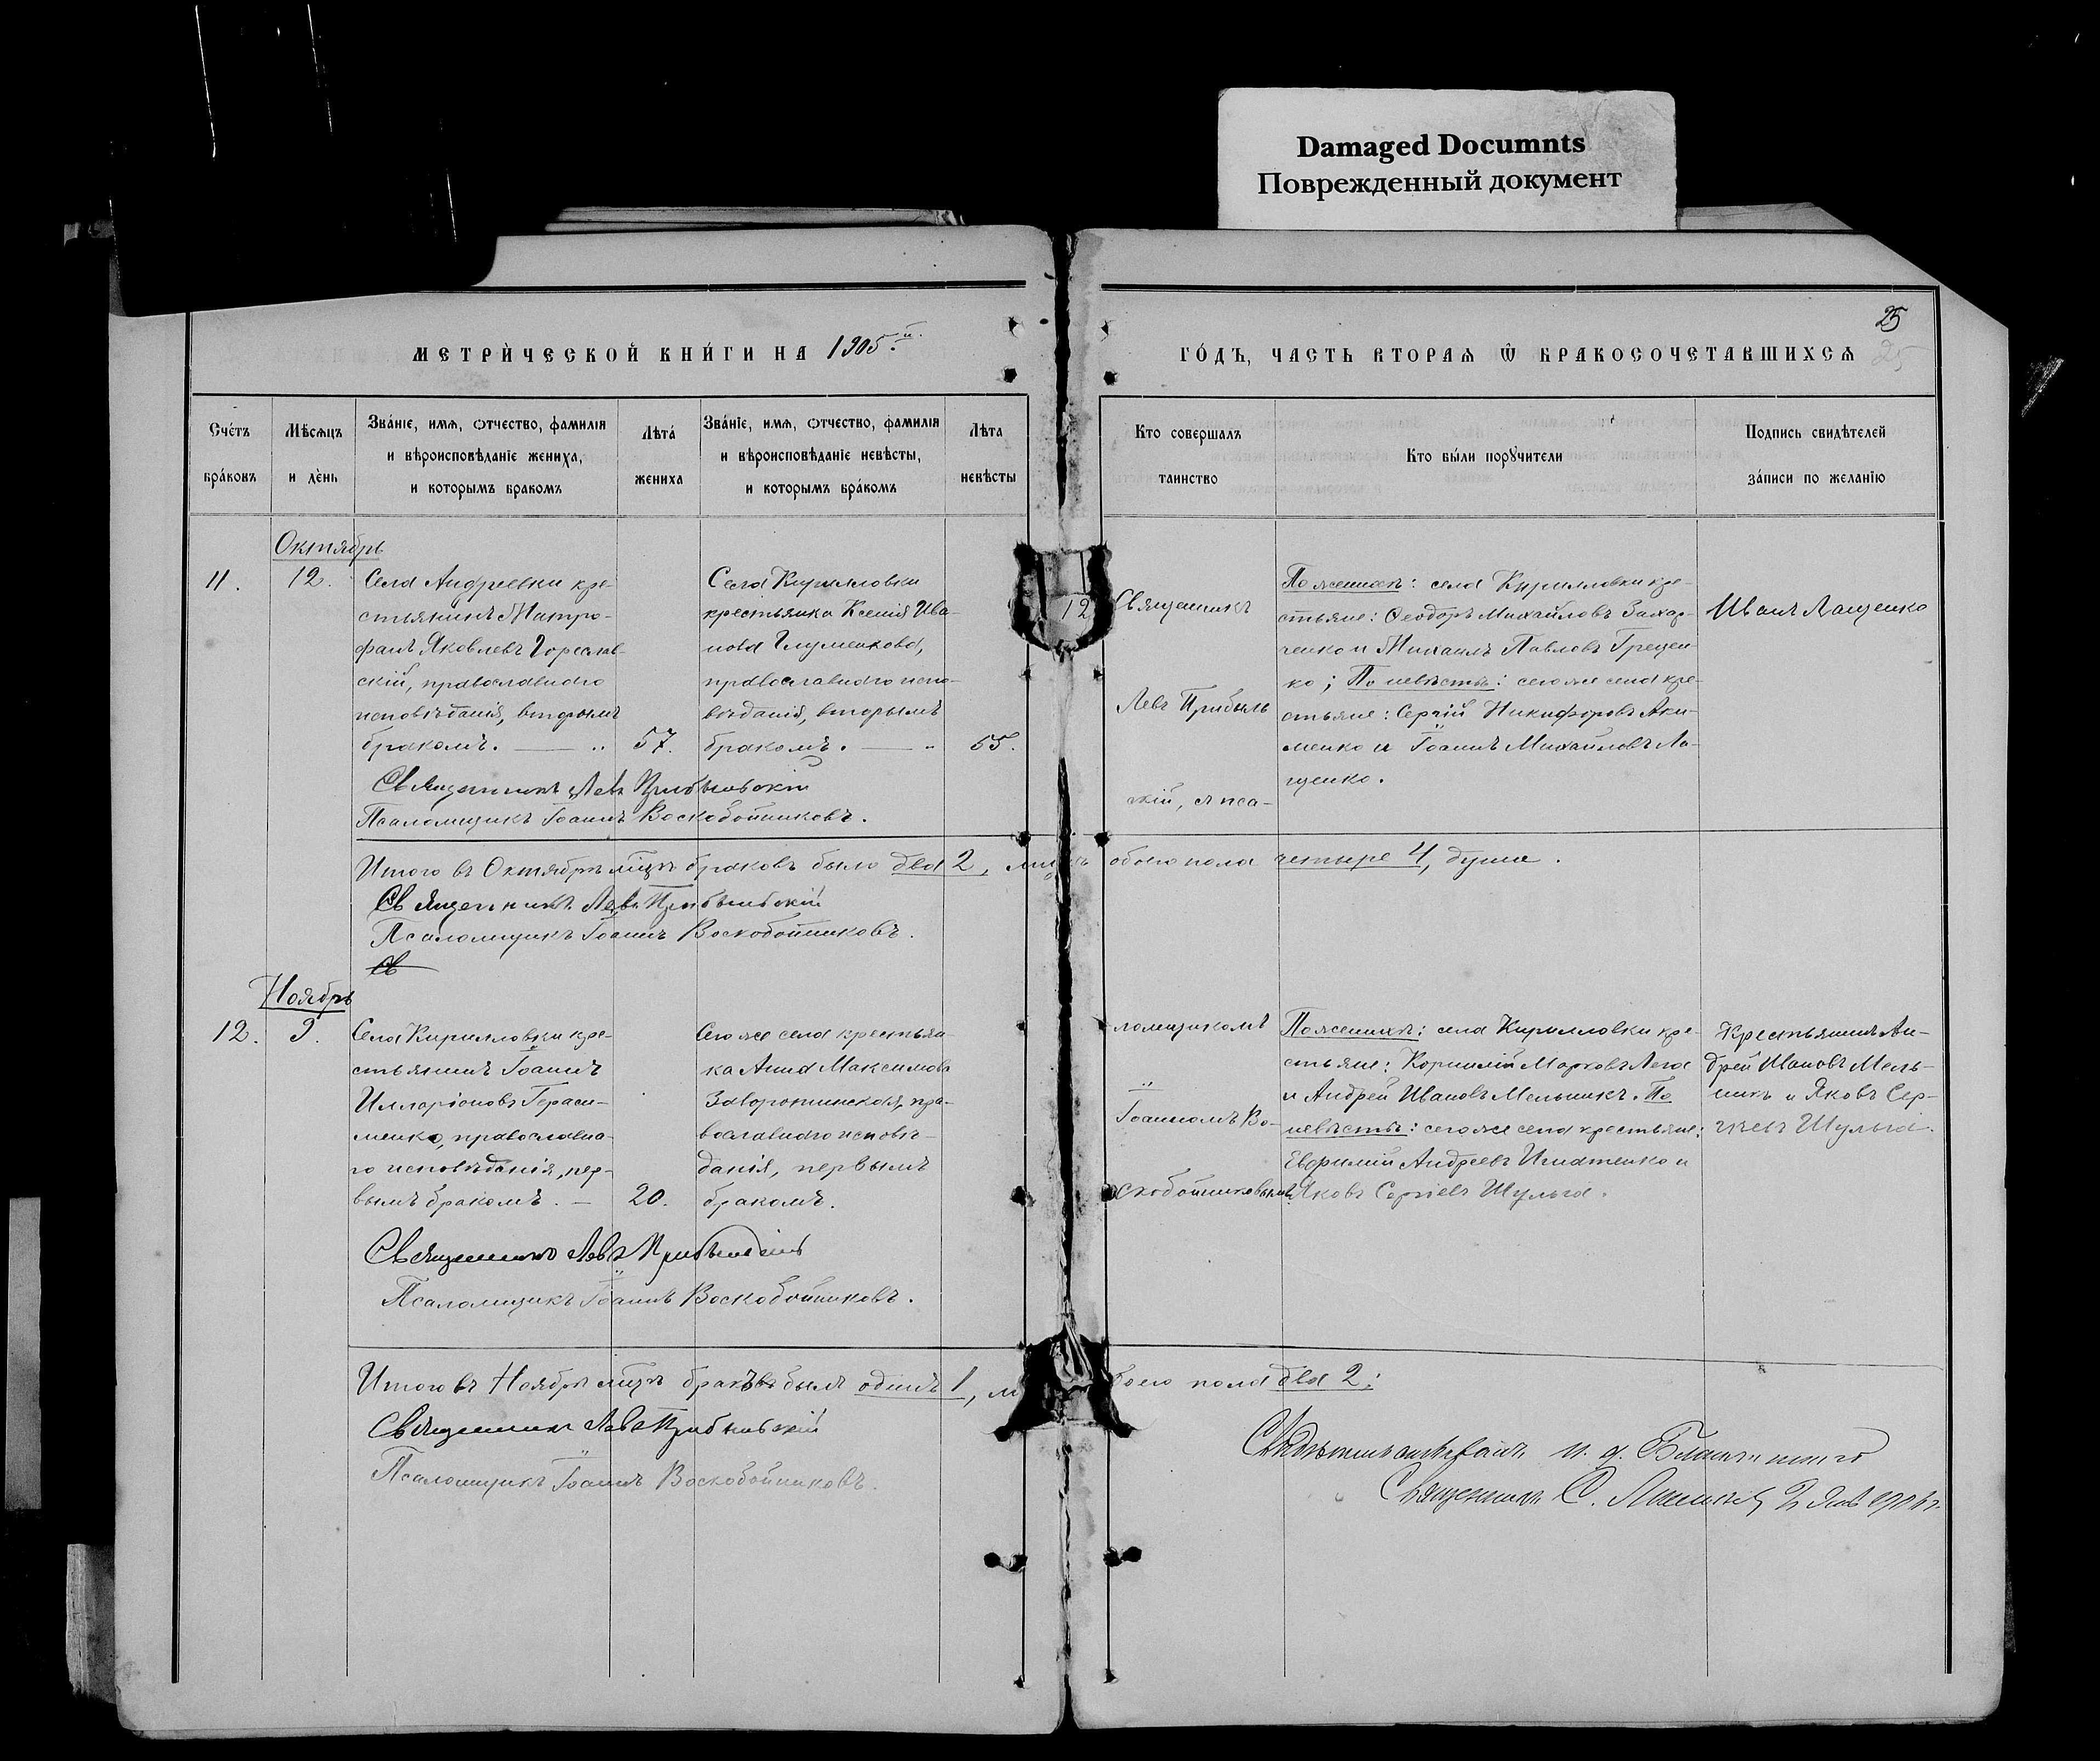 Damaged Documnts
Поврежденный документ
25
МЕТРИ́ЧЕСКОЙ КНИ́ГИ НА 1905.й
ГО́ДЪ, ЧАСТЬ ВТОРАѦ Ѿ БРАКОСОЧЕТАВШИХСѦ
25
Сче́тъ бра́ковъ
Мѣсѧцъ и де́нь
Зва́нїе, имѧ, ѻтчество, фамилїя и вѣроисповѣданїе жениха, и которымъ бракомъ
Лѣта́ жениха
Зва́нїе, имѧ, ѻтчество, фамилїя и вѣроисповѣданїе невѣсты, и которымъ бра́комъ
Лѣта невѣсты
Кто совершалъ таинство
Кто бы́ли порꙋчители
Подпись свидѣтелей за́писи по желанїю
Октябрь
11.
12.
Села Андреевки кре-
стьянинъ Митро-
фанъ Яковлевъ Гореслав-
скій, православнаго
исповѣданія, вторымъ
бракомъ. —— "
57.
Села Кирилловки
крестьянка Ксенія Ива-
нова Глуменкова,
православнаго испо-
вѣданія, вторымъ
бракомъ. —— "
55.
12
Священникъ
Левъ Прибыль
скій, съ пса-
По женихѣ: села Кирилловки кре-
стьяне: Ѳеодоръ Михайловъ Захар-
ченко и Михаилъ Павловъ Грецен-
ко; По невѣстѣ: сегоже села кре-
стьяне: Сергій Никифоровъ Аки-
менко и Іоаннъ Михайловъ Ла-
щенко.
Иванъ Лащенко
Священникъ Левъ Прибыльскій
Псаломщикъ Іоаннъ Воскобойниковъ.
Итого въ Октябрѣ мцѣ браковъ было два 2, обоего пола четыре 4, души.
Священникъ Левъ Прибыльскій
Псаломщикъ Іоаннъ Воскобойниковъ.
Св
Ноябрь
12.
9.
Села Кирилловки кре-
стьянинъ Іоаннъ
Илларіоновъ Гераси-
менко, православна-
го исповѣданія, пер-
вымъ бракомъ. —
20.
Сегоже села крестьян-
ка Анна Максимова
Заворотинская, пра-
вославнаго исповѣ-
данія, первымъ
бракомъ.
ломщикомъ
Іоанномъ Во-
скобойниковымъ
По женихѣ: села Кирилловки кре-
стьяне: Корнилій Марковъ Лега
и Андрей Ивановъ Мельникъ. По
невѣстѣ: сегоже села крестьяне:
Евфимій Андреевъ Игнатенко и
Яковъ Сергіевъ Шульга.
Крестьянинъ Ан-
дрей Ивановъ Мель-
никъ и Яковъ Сер-
гіевъ Шульга.
Священникъ Левъ Прибыльскій
Псаломщикъ Іоаннъ Воскобойниковъ.
Итого въ Ноябрѣ мцѣ браковъ былъ одинъ 1, обоего пола два 2:
Священникъ Левъ Прибыльскій
Псаломщикъ Іоаннъ Воскобойниковъ.
Свидѣтельствовалъ и. д. Благочиннаго
Священникъ С.